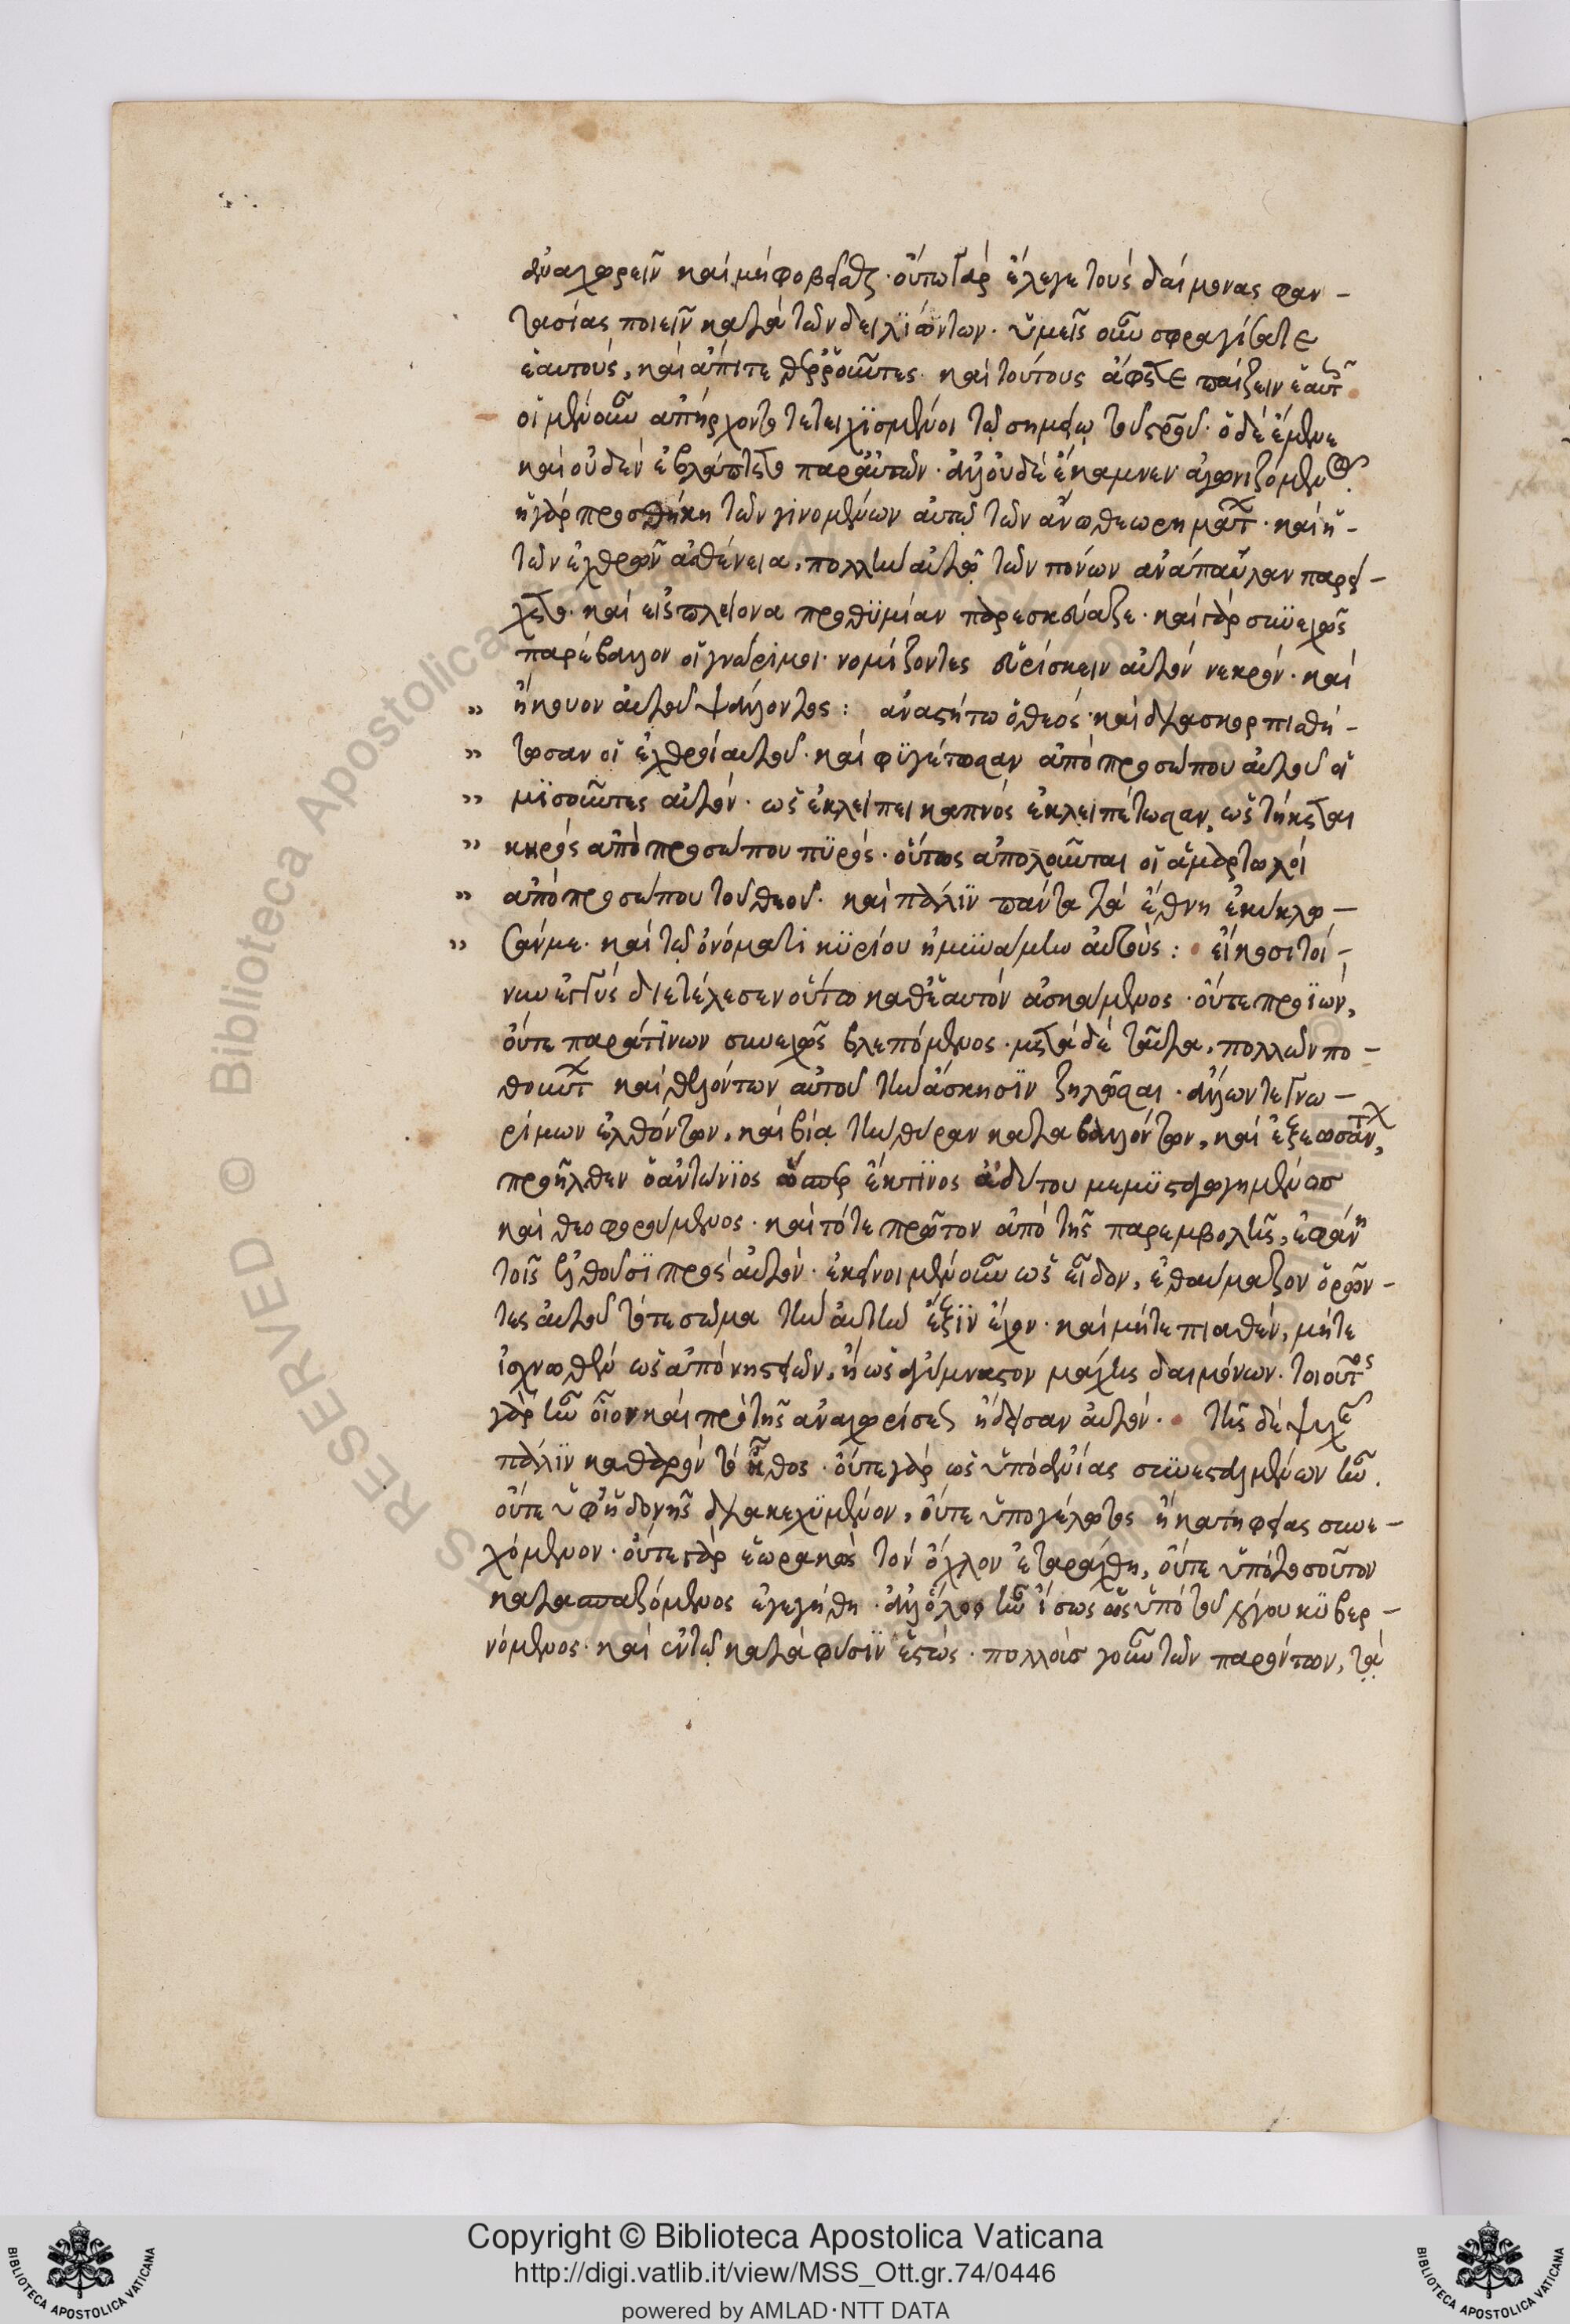 ἀναχωρεῖν καὶ μὴ φοβεῖσθαι· οὕτω γὰρ ἔλεγε τοὺς δαίμονας φαν-
τασίας ποιεῖν κατὰ τῶν δειλϊώντων. ὑμεῖς οὖν σφραγίσατε
ἑαυτοὺς, καὶ ἄπιτε θαρροῦντες· καὶ τούτους ἄφετε παίζειν ἑαυτοῖς
οἱ μὲν οὖν ἀπήρχοντο τετειχϊσμένοι τῷ σημείῳ τοῦ σταυροῦ· ὁ δὲ ἔμενε
καὶ οὐδὲν ἐβλάπτετο παρ' αὐτῶν· ἀλλ' οὐδὲ ἔκαμνεν ἀγωνιζόμενος.
ἡ γὰρ προσθήκη τῶν γινομένων αὐτῷ τῶν ἄνω θεωρημάτων· καὶ ἡ
τῶν ἐχθρῶν ἀσθένεια, πολλὴν αὐτῷ τῶν πόνων ἀνάπαυλαν παρεί-
χετο· καὶ εἰς πλείονα προθϋμίαν παρεσκεύαζε· καὶ γὰρ συνεχῶς
παρέβαλλον οἱ γνώριμοι· νομίζοντες εὑρίσκειν αὐτὸν νεκρόν· καὶ
" ἤκουον αὐτοῦ ψάλλοντος: ἀναστήτω ὁ θεός· καὶ διασκορπισθή-
" τωσαν οἱ ἐχθροὶ αὐτοῦ· καὶ φϋγέτωσαν ἀπὸ προσώπου αὐτοῦ οἱ
" μϊσοῦντες αὐτόν· ὡς ἐκλείπει καπνὸς ἐκλειπέτωσαν, ὡς τήκεται
" κηρὸς ἀπὸ προσώπου πϋρός· οὕτως ἀπολοῦνται οἱ ἁμαρτωλοὶ
" ἀπὸ προσώπου τοῦ θεοῦ· καὶ πάλϊν πάντα τὰ ἔθνη ἐκύκλω-
" σάν με· καὶ τῷ ὀνόματι κϋρίου ἠμϋνάμην αὐτούς: εἴκοσι τοί-
νυν ἔτη διετέλεσεν οὕτω καθ' ἑαυτὸν ἀσκούμενος· οὔτε προϊὼν,
οὔτε παρά τινων συνεχῶς βλεπόμενος· μετὰ δὲ ταῦτα, πολλῶν πο-
θούντων καὶ θελόντων αὐτοῦ τὴν ἄσκησϊν ζηλῶσαι· ἄλλων τε γνω-
ρίμων ἐλθόντων, καὶ βίᾳ τὴν θύραν καταβαλλόντων, καὶ ἐξεωσάντων,
προῆλθεν ὁ ἀντώνϊος ὥσπερ ἔκ τϊνος ἀδύτου μεμϋσταγωγημένος
καὶ θεοφορούμενος· καὶ τότε πρῶτον ἀπὸ τῆς παρεμβολῆς, ἐφάνη
τοῖς ἐλθοῦσϊ πρὸς αὐτόν· ἐκεῖνοι μὲν οὖν ὡς εἶδον, ἐθαύμαζον ὁρῶν-
τες αὐτοῦ τό τε σῶμα τὴν αὐτὴν ἕξϊν ἔχον· καὶ μήτε πιανθὲν, μήτε
ἰσχνωθὲν ὡς ἀπὸ νηστειῶν, ἢ ὡς ἀγύμναστον μάχης δαιμόνων. τοιοῦτος
γὰρ ἦν οἷον καὶ πρὸ τῆς ἀναχωρήσεως ᾔδεισαν αὐτόν. τῆς δὲ ψυχῆς
πάλϊν καθαρὸν τὸ ἦθος· οὔτε γὰρ ὡς ὑπὸ ἀνίας συνεσταλμένων ἦν.
οὔτε ὑφ' ἡδονῆς διακεχϋμένον, οὔτε ὑπὸ γέλωτος ἢ κατηφείας συνε-
χόμενον· οὔτε γὰρ ἑωρακὼς τὸν ὄχλον ἐταράχθη, οὔτε ὑπὸ τοσοῦτον
κατασπαζόμενος ἐγεγήθη· ἀλλ' ὅλος ἦν ἴσως ὡς ὑπὸ τοῦ λόγου κϋβερ-
νόμενος· καὶ ἐν τῷ κατὰ φύσϊν ἑστώς· πολλοὺς γοῦν τῶν παρόντων, τὰ
Copyright © Biblioteca Apostolica Vaticana
http://digi.vatlib.it/view/MSS_Ott.gr.74/0446
powered by AMLAD·NTT DATA